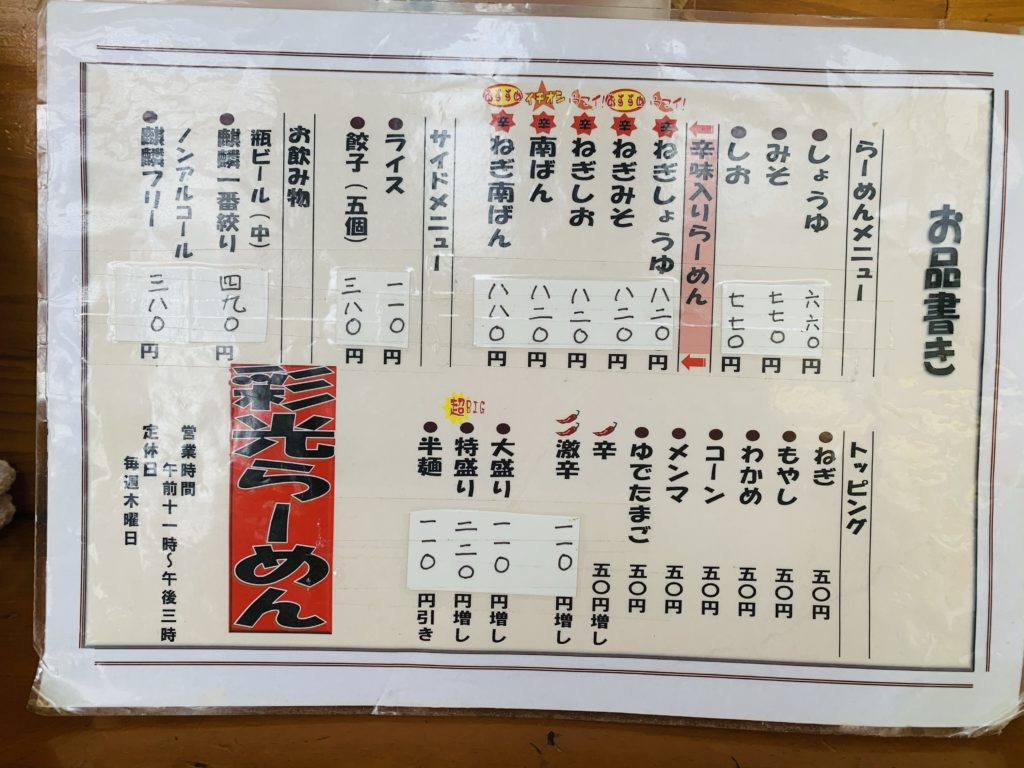 お品書き
らーめんメニュー
しょうゆ 六六〇円
みそ 七七〇円
しお 七七〇円
辛味入りらーめん
辛 ねぎしょうゆ 八二〇円
おすすめ 辛 ねぎみそ 八二〇円
辛 ねぎしお 八二〇円
イチオシ 辛 南ばん 八二〇円
おすすめ 辛 ねぎ南ばん 八八〇円
サイドメニュー
ライス 一一〇円
餃子(五個) 三八〇円
お飲み物
瓶ビール(中)
麒麟一番絞り 四九〇円
ノンアルコール
麒麟フリー 三八〇円
トッピング
ねぎ 五〇円
もやし 五〇円
わかめ 五〇円
コーン 五〇円
メンマ 五〇円
ゆでたまご 五〇円
辛 五〇円増し
激辛 一一〇円増し
大盛り 一一〇円増し
超BIG 特盛り 二二〇円増し
半麺 一一〇円引き
彩光らーめん
営業時間
午前十一時～午後三時
定休日
毎週木曜日